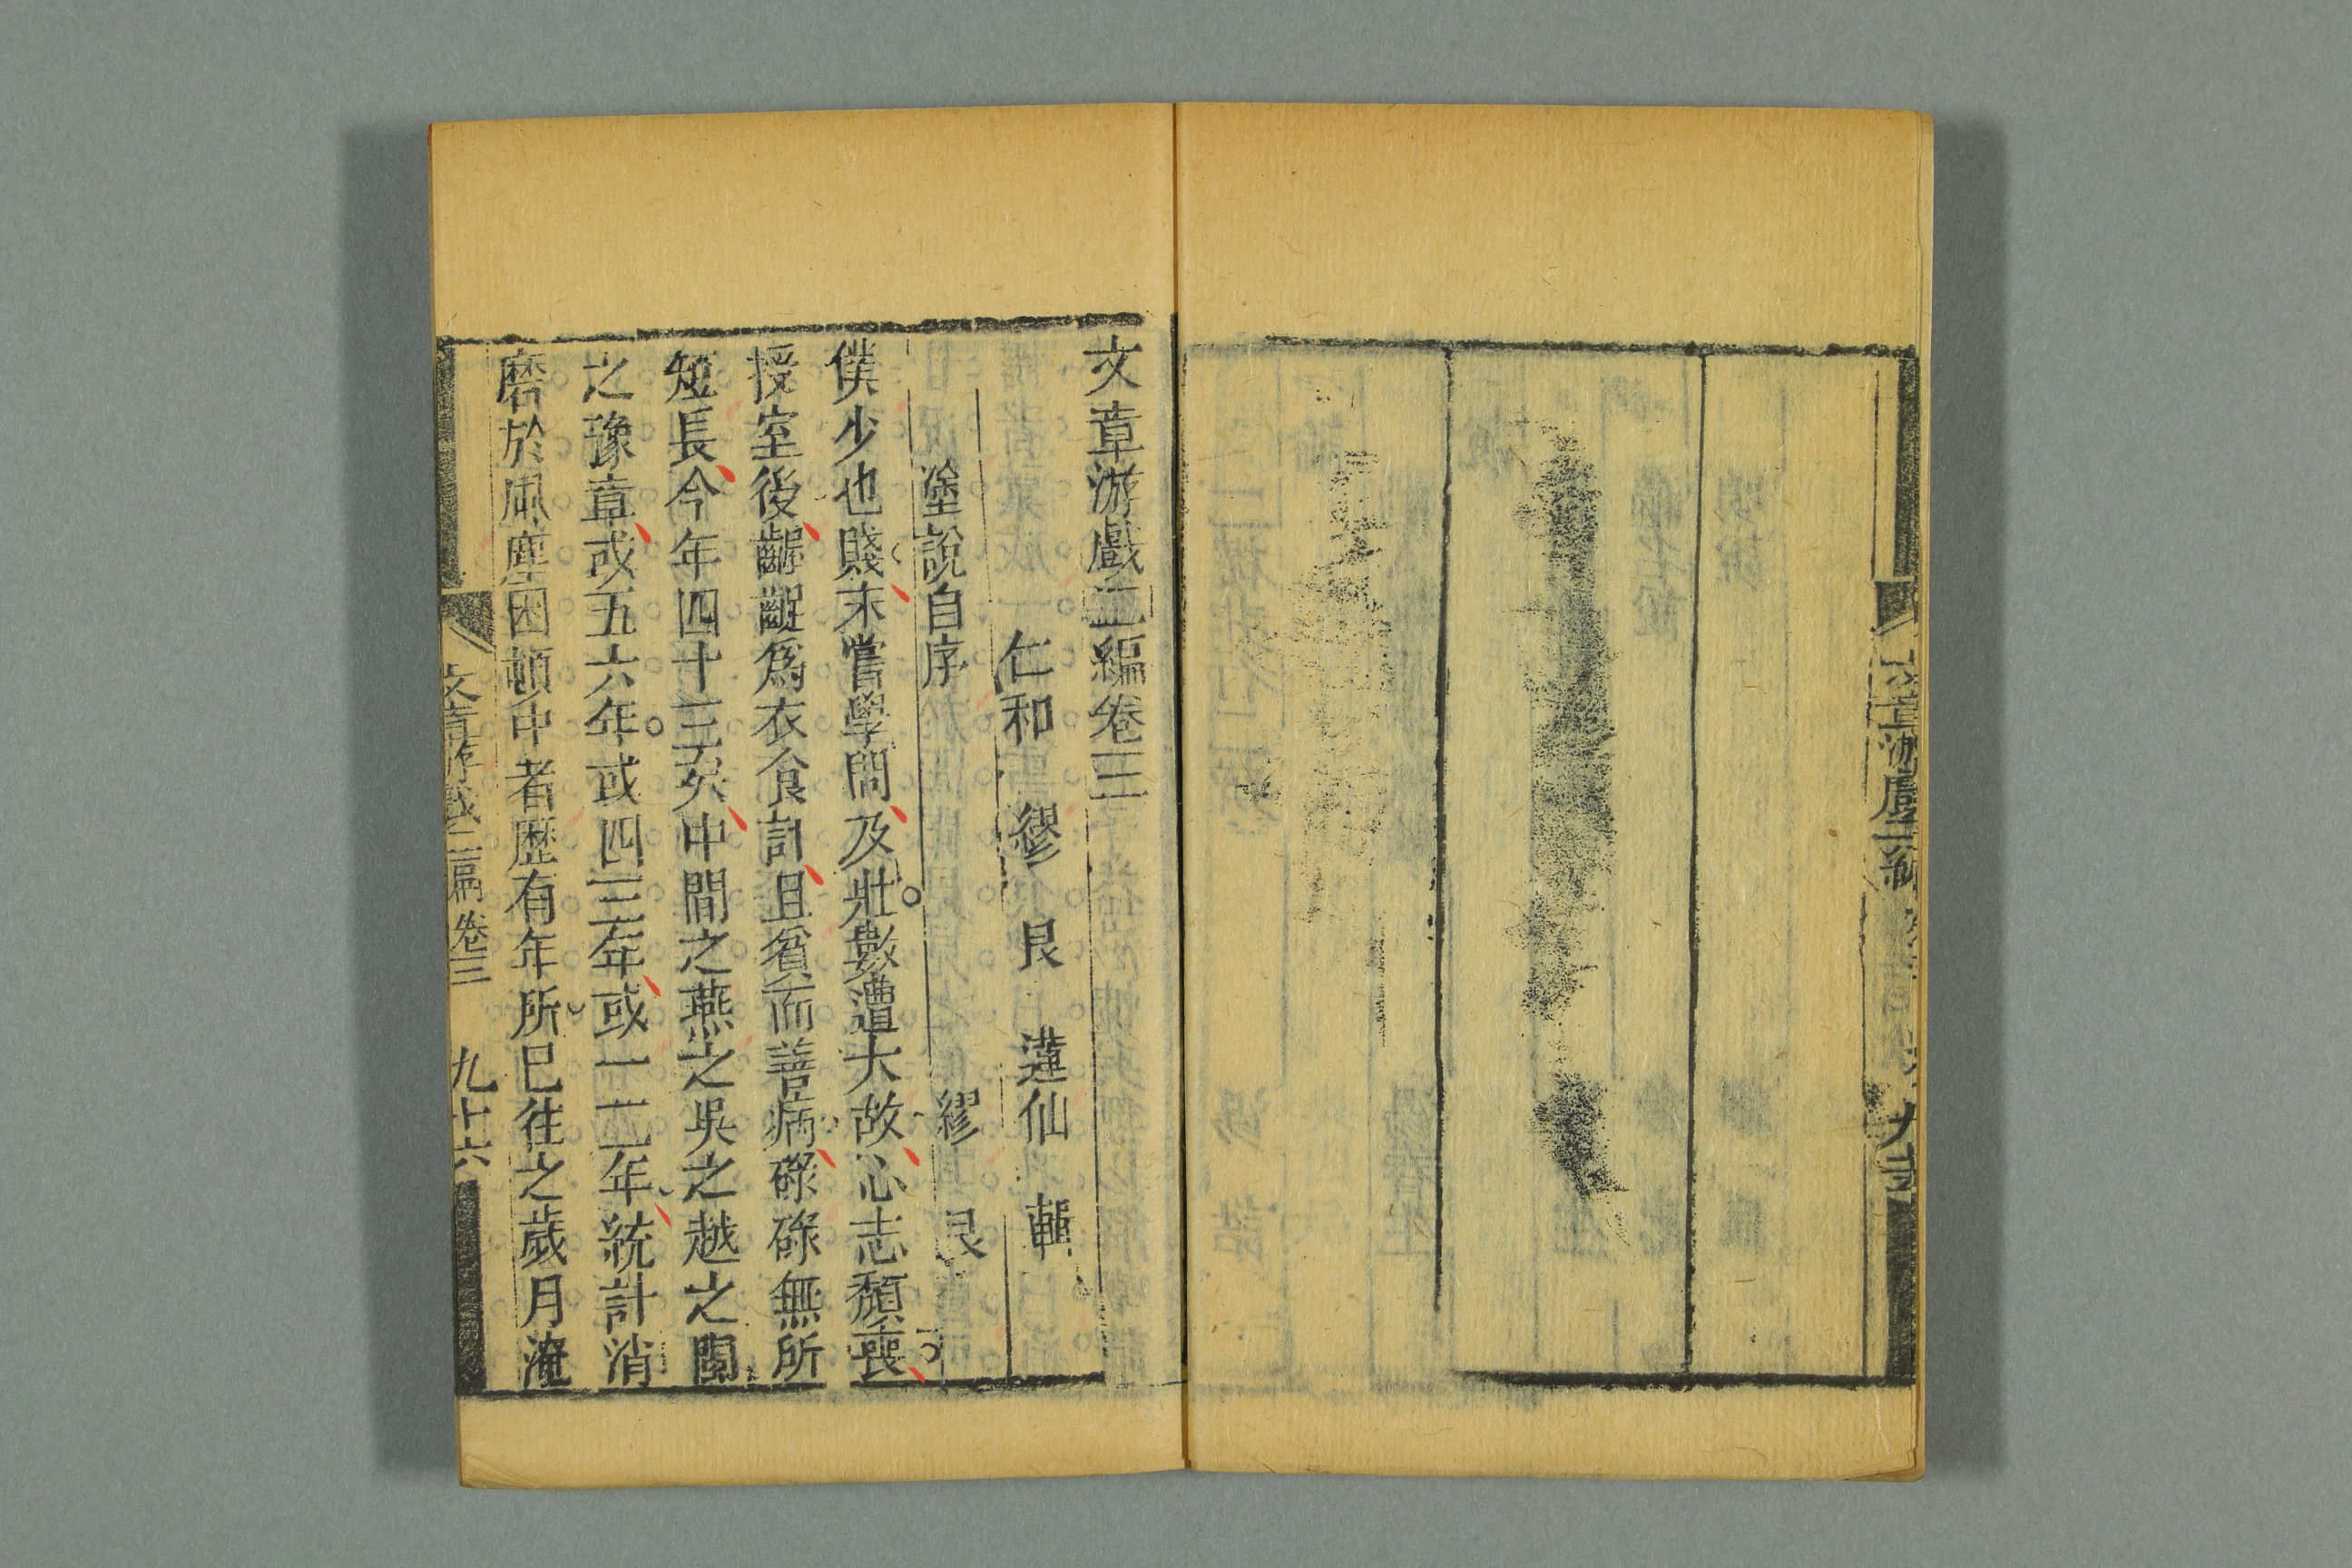 文章游戲二編卷三
仁和 繆 艮 蓮仙 輯
塗說自序 繆 艮
僕少也賤未嘗學問及壯數遭大故心志頹喪
授室後齷齪爲衣食計且貧而善病碌碌無所
短長今年四十三矣中間之燕之吳之越之閩
之豫章或五六年或四三年或一二年統計消
磨於風塵困頓中者歷有年所已往之歲月淹
文章游戲二編卷三 九十六